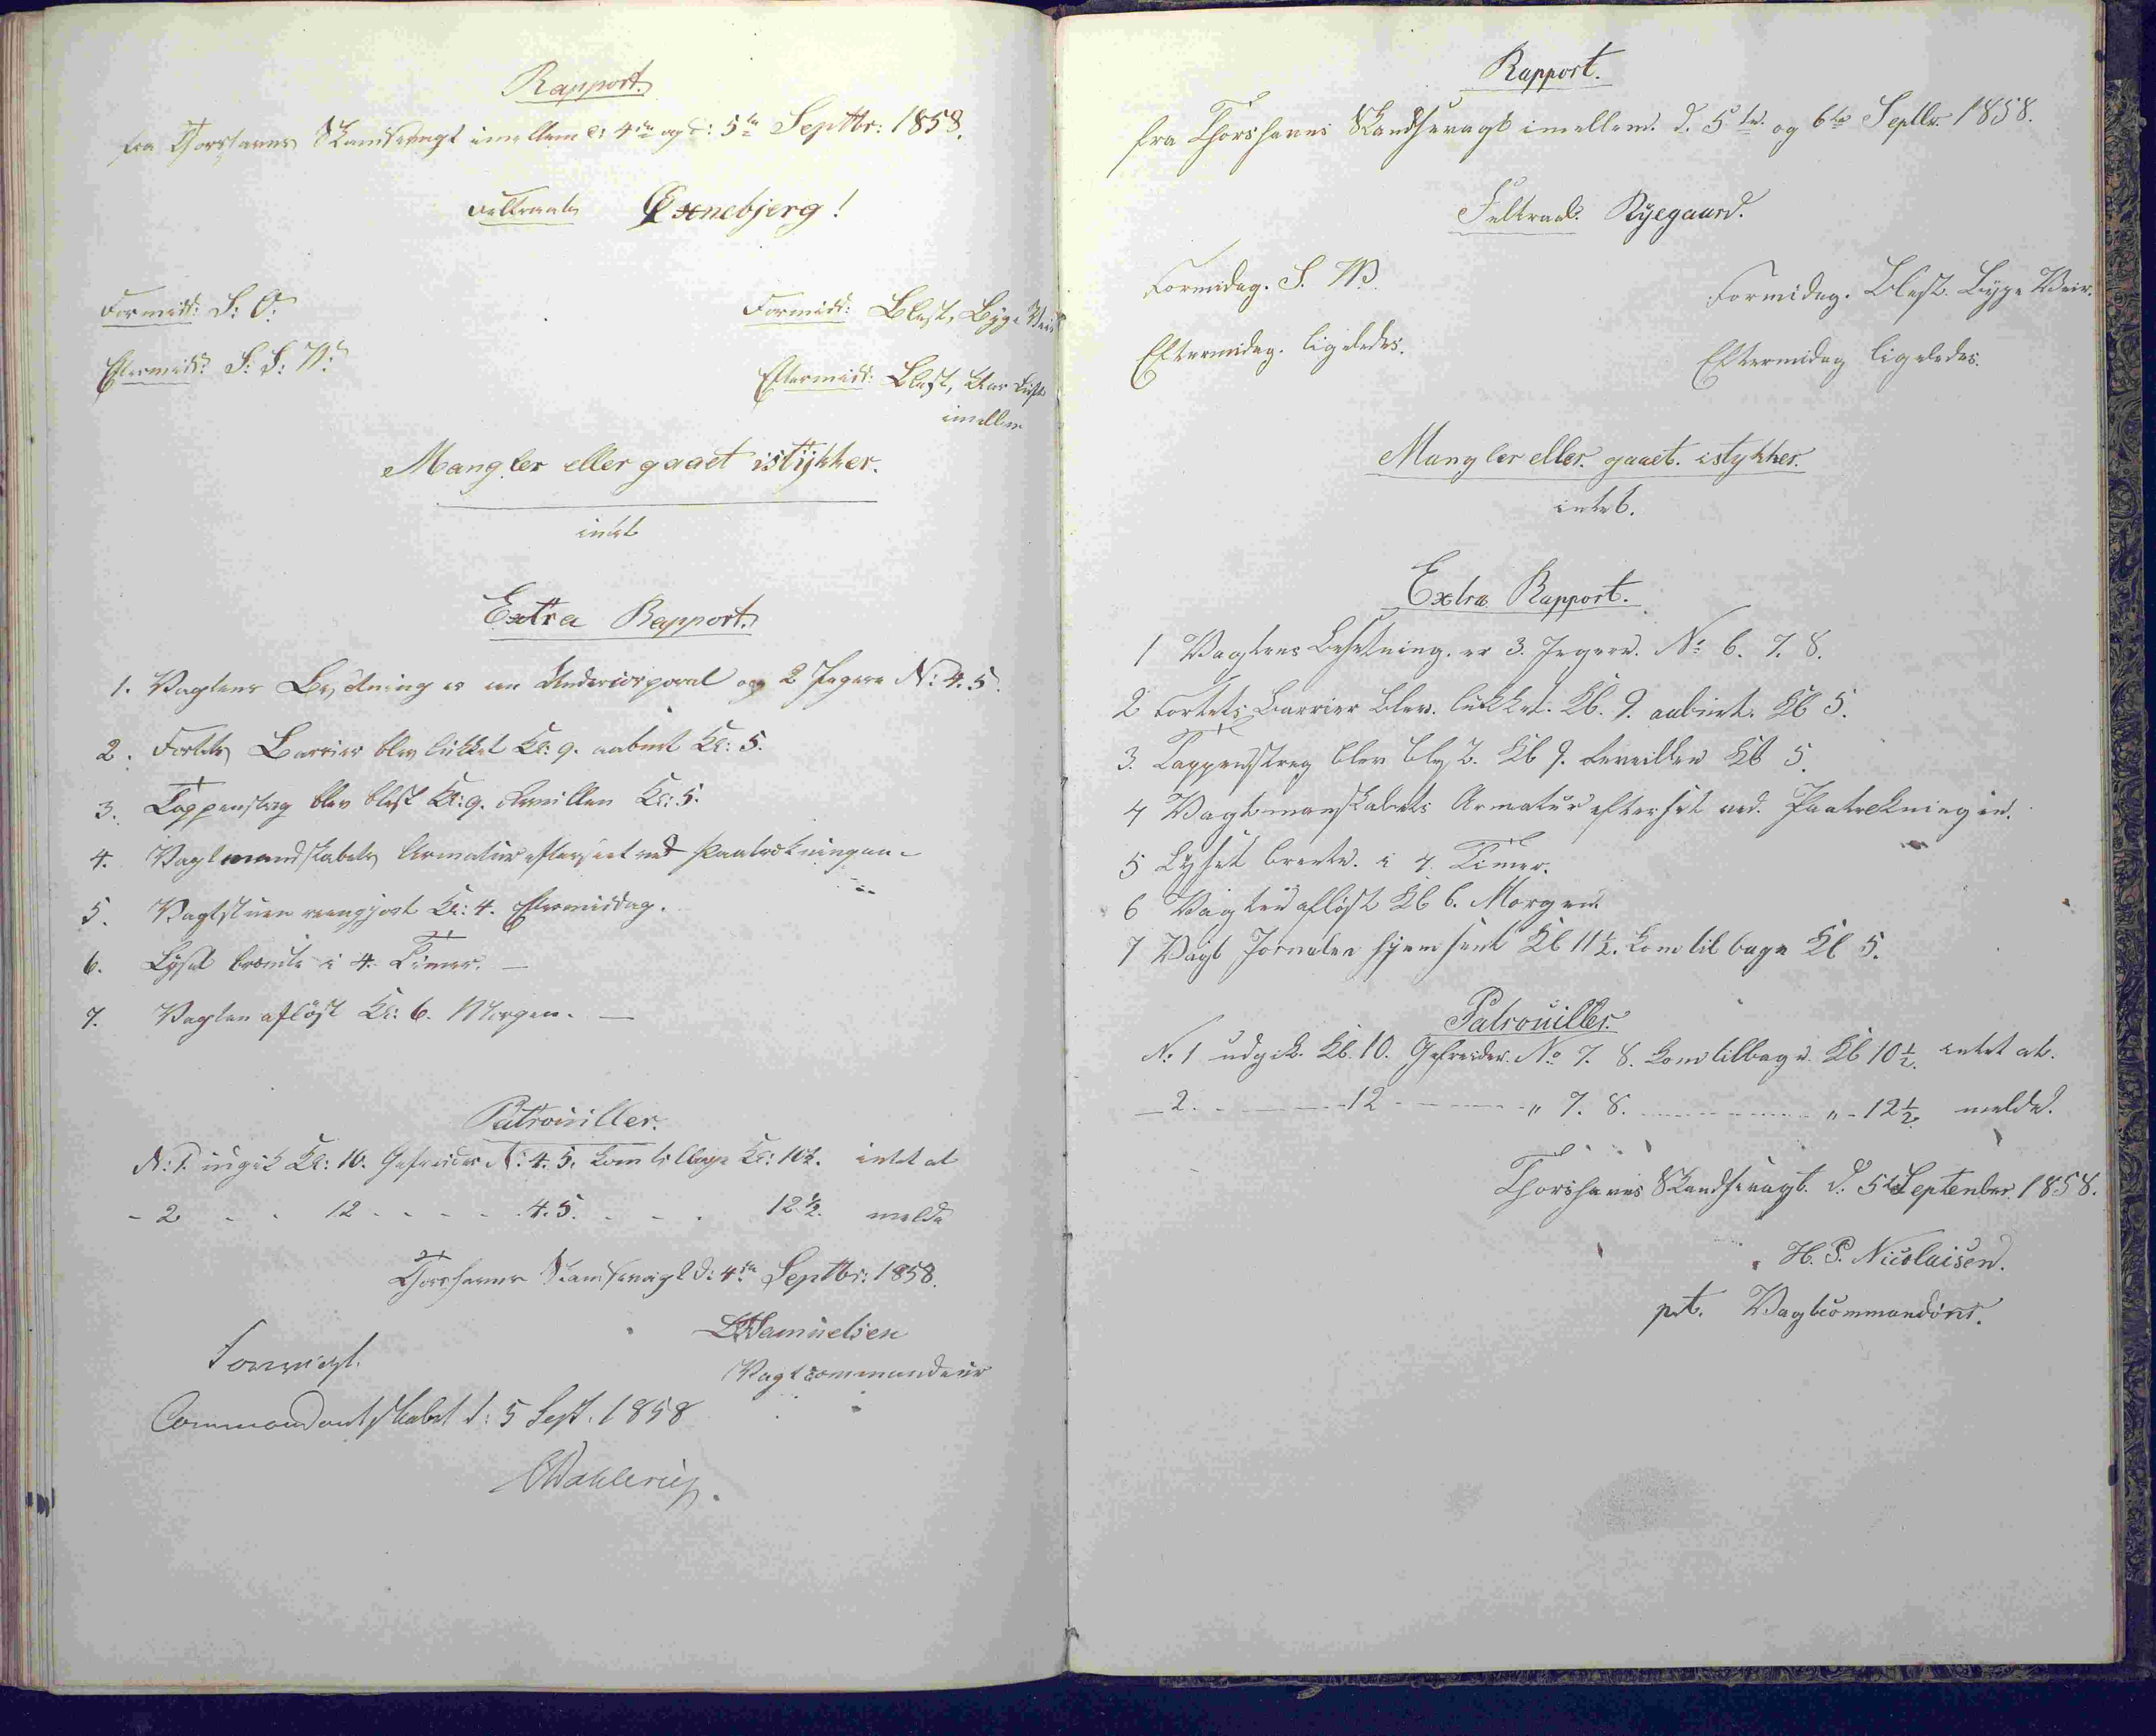 Rapport.
fra Thorshavns Skandsevagt imellem d: 4de og d: 5te Septbr: 1858.
Feltraab Oxnebjerg!
Formidd: S: O: Formidd: Blæst, Byge Veir
Eftermidd: S: S: V: Eftermidd: Blæst, klar Luft
imellem
Mangler eller gaaet istÿkker.
intet
Extra Rapport.
1. Vagtens Besætning er en Undercorporal og 2 Jægere N: 4. 5.
2. Fortets Barrier blev lukket Kl: 9. aabnet Kl: 5.
3. Tappenstreg blev blæst Kl: 9. Reveillen Kl: 5.
4. Vagtmandskabets Armatur efterseet ved Paatrækningen -
5. Vagtstuen reengjort Kl: 4. Eftermiddag.
6. Lyset brændte i 4. Timer. -
7. Vagten afløst Kl: 6. Morgen. -
Patrouiller.
N: 1. udgik Kl: 10. Gefreider N: 4. 5. kom tilbage Kl: 10½. intet at
- 2 - - 12 - - - - 4. 5. - - - 12½. melde
Thorshavns Skandsevagt d: 4de Septbr: 1858.
Samuelsen
Vagtcommandeur
Forevist.
Commandantskabet d: 5 Sept. 1858
Dahlerup.
Rapport.
fra Thorshavns Skandsevagt imellem. d. 5te og 6te Septbr. 1858.
Feltraab. Ryegaard.
Formidag. S. V. Formidag. Blæst. Byge Veir.
Eftermidag. ligeledes. Eftermidag ligeledes.
Mangler eller. gaaet. istykker.
intet.
Extra Rapport.
1 Vagtens Besetning. er 3. Jegere. No 6. 7. 8.
2 Fortets Barrier blev. lukket. Kl. 9. aabnet. Kl 5.
3. Tappenstreg blev blæst. Kl 9. Reveillen Kl 5.
4 Vagtmanskabets Armatur efterset ved. Paatrekningen.
5 Lyset brente. i 4. Timer.
6 Vagten afløst Kl 6. Morgen.
7 Vagt Jornalen hjemsent Kl 11½. kom tilbage Kl 5.
Patrouiller.
N: 1 udgik. Kl. 10. Gefreider. No 7. 8. kom tilbage. Kl 10½. intet at.
- 2. - - - 12 - - - - " 7. 8. - - - - " - 12½ melde.
Thorshavns Skandsevagt. d: 5te September. 1858.
H. P. Nicolaisen.
pt. Vagtcommandör.